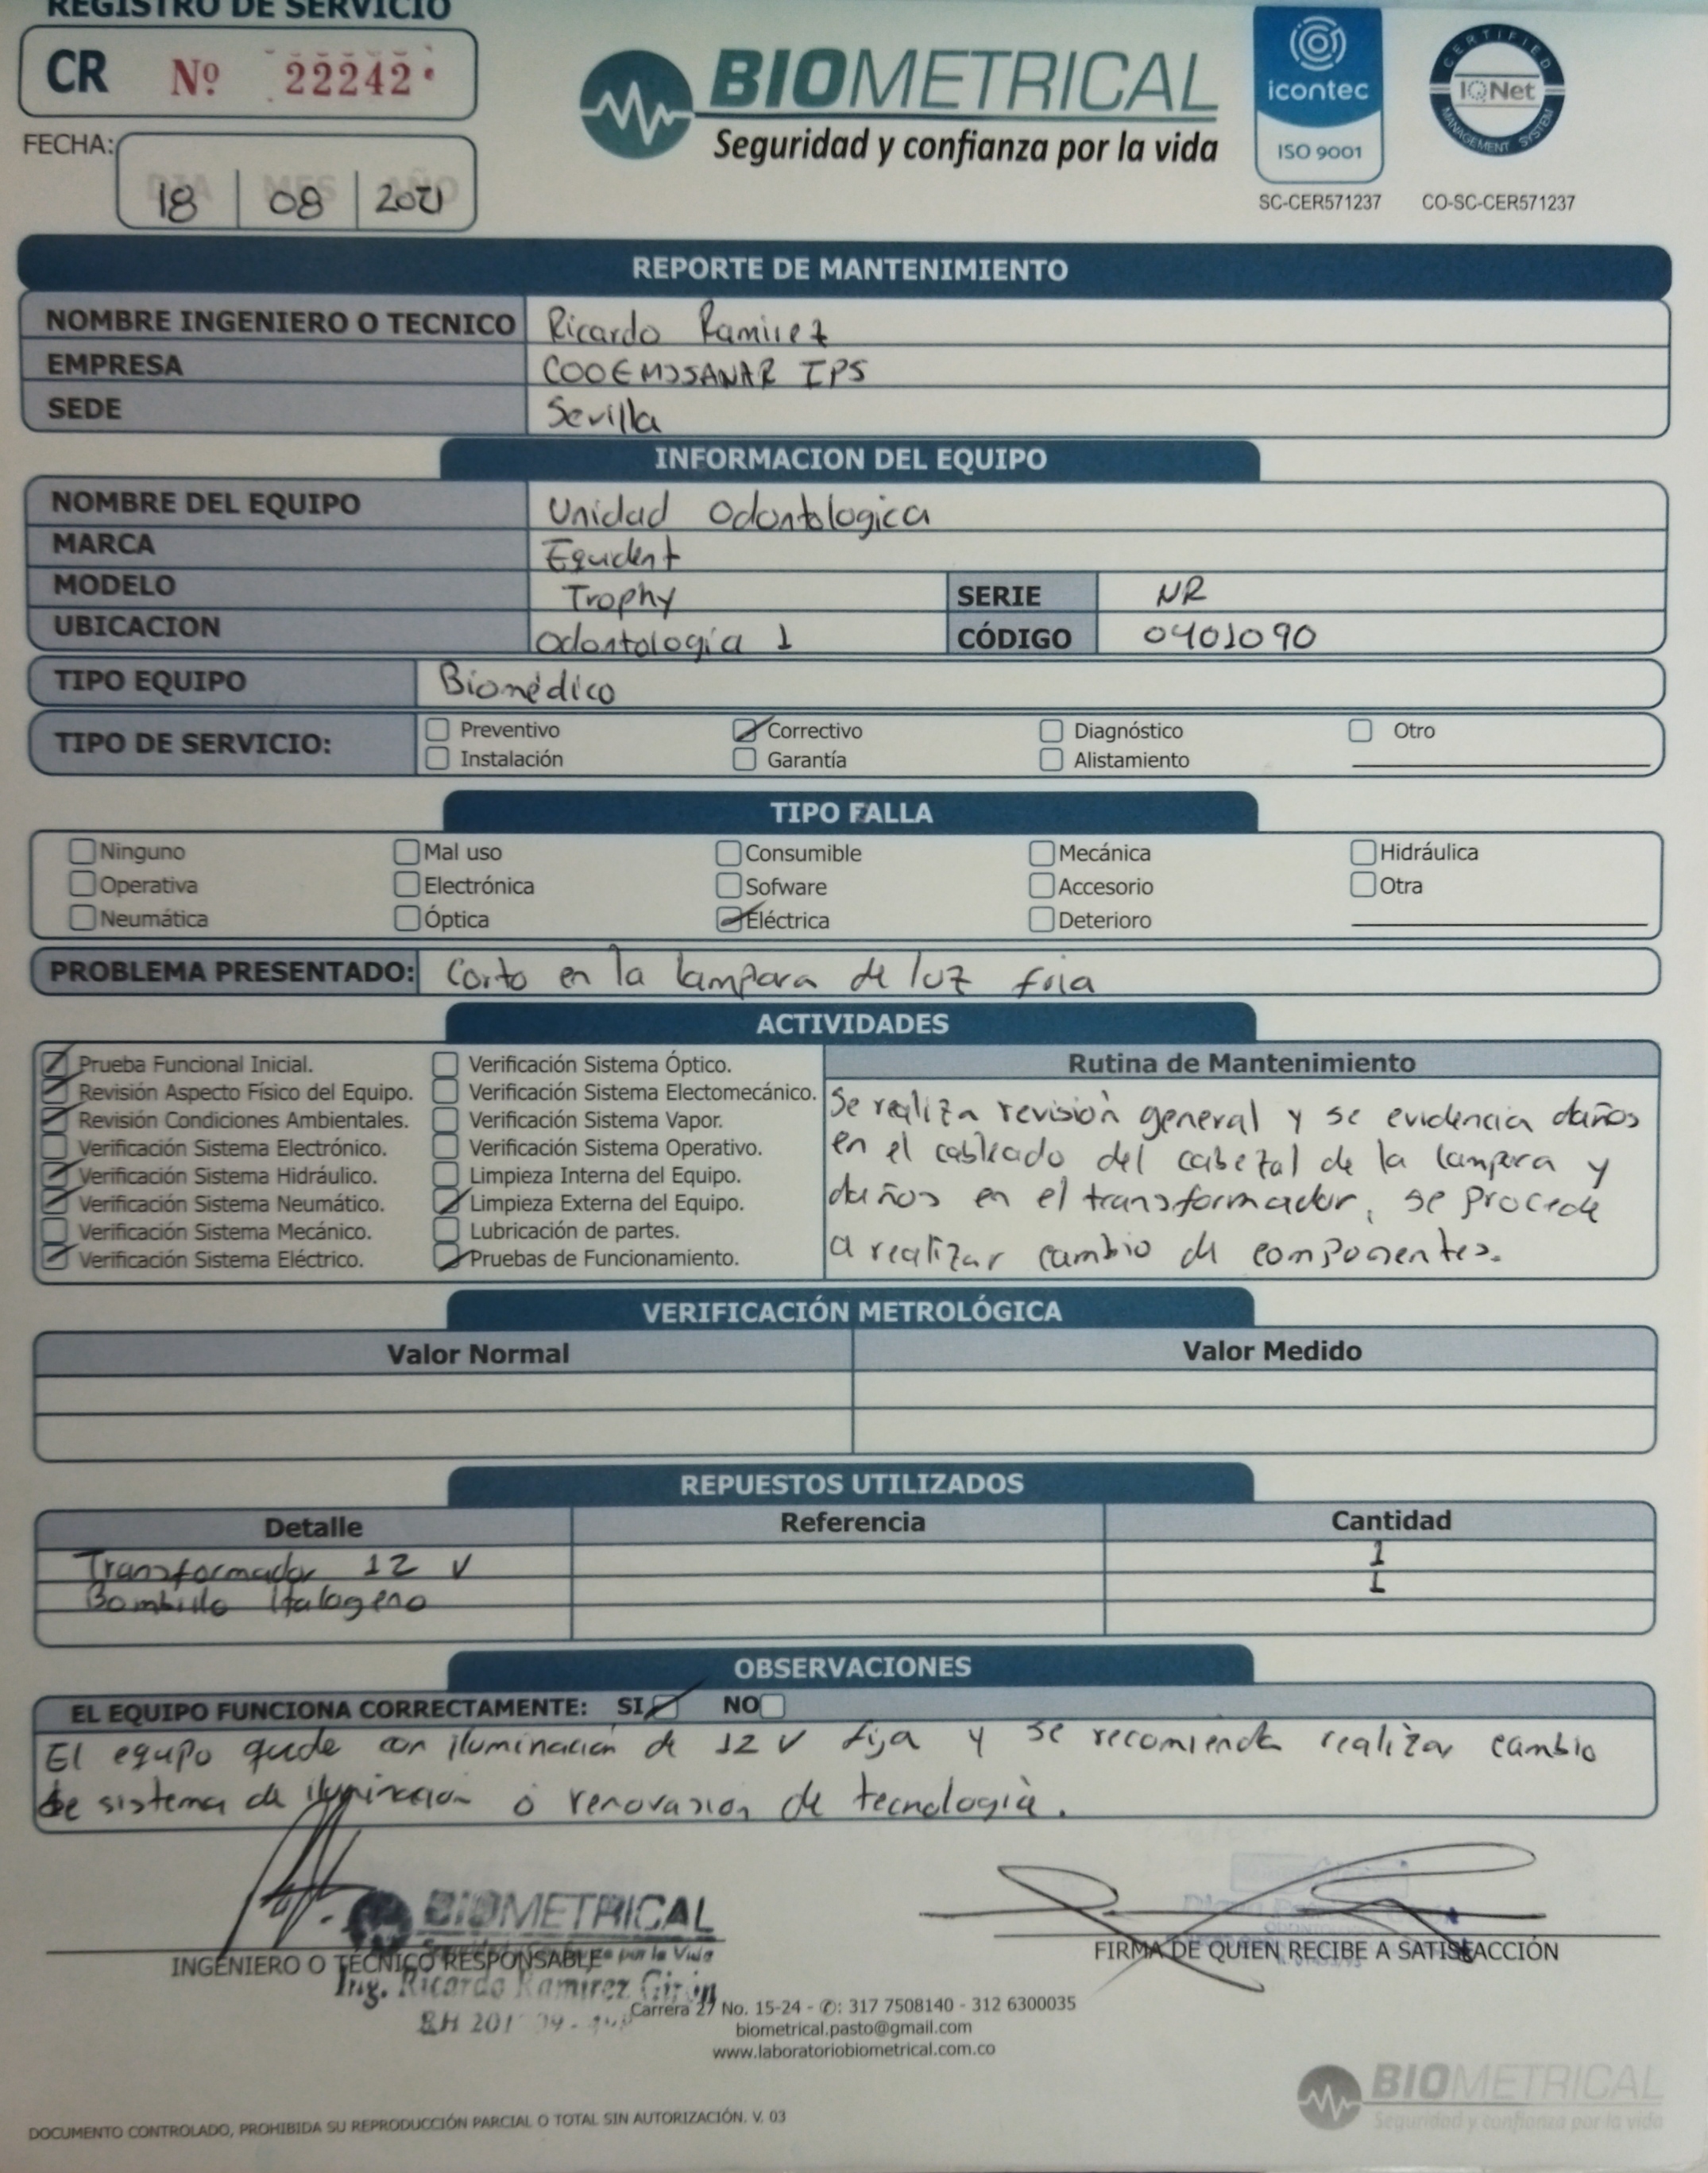 REGISTRO DE SERVICIO
CR Nº 22242
FECHA:
DIA MES AÑO
18 08 2021
BIOMETRICAL
Seguridad y confianza por la vida
icontec
ISO 9001
SC-CER571237
CERTIFIED
IQNet
MANAGEMENT SYSTEM
CO-SC-CER571237
REPORTE DE MANTENIMIENTO
NOMBRE INGENIERO O TECNICO Ricardo Ramirez
EMPRESA COOEMSSANAR IPS
SEDE Sevilla
INFORMACION DEL EQUIPO
NOMBRE DEL EQUIPO Unidad Odontologica
MARCA Equident
MODELO Trophy SERIE NR
UBICACION Odontología 1 CÓDIGO 0401090
TIPO EQUIPO Biomédico
TIPO DE SERVICIO:
Preventivo Correctivo Diagnóstico Otro
Instalación Garantía Alistamiento
TIPO FALLA
Ninguno Mal uso Consumible Mecánica Hidráulica
Operativa Electrónica Sofware Accesorio Otra
Neumática Óptica Eléctrica Deterioro
PROBLEMA PRESENTADO: Corto en la lampara de luz fria
ACTIVIDADES
Prueba Funcional Inicial.
Revisión Aspecto Físico del Equipo.
Revisión Condiciones Ambientales.
Verificación Sistema Electrónico.
Verificación Sistema Hidráulico.
Verificación Sistema Neumático.
Verificación Sistema Mecánico.
Verificación Sistema Eléctrico.
Verificación Sistema Óptico.
Verificación Sistema Electomecánico.
Verificación Sistema Vapor.
Verificación Sistema Operativo.
Limpieza Interna del Equipo.
Limpieza Externa del Equipo.
Lubricación de partes.
Pruebas de Funcionamiento.
Rutina de Mantenimiento
Se realiza revisión general y se evidencia daños
en el cableado del cabezal de la lampara y
daños en el transformador, se procede
a realizar cambio de componentes.
VERIFICACIÓN METROLÓGICA
Valor Normal Valor Medido
REPUESTOS UTILIZADOS
Detalle Referencia Cantidad
Transformador 12 V 1
Bombillo Halogeno 1
OBSERVACIONES
EL EQUIPO FUNCIONA CORRECTAMENTE: SI NO
El equipo quede con iluminación de 12 V fija y se recomienda realizar cambio
de sistema de iluminación ó renovasion de tecnologià.
BIOMETRICAL
INGENIERO O TÉCNICO RESPONSABLE
Ing. Ricardo Ramirez Girón
FIRMA DE QUIEN RECIBE A SATISFACCIÓN
Carrera 27 No. 15-24 - ✆: 317 7508140 - 312 6300035
biometrical.pasto@gmail.com
www.laboratoriobiometrical.com.co
BIOMETRICAL
Seguridad y confianza por la vida
DOCUMENTO CONTROLADO, PROHIBIDA SU REPRODUCCIÓN PARCIAL O TOTAL SIN AUTORIZACIÓN. V. 03